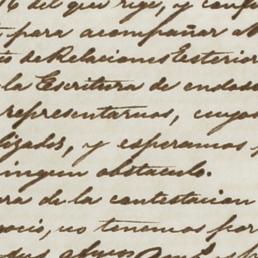 6 del que rige, y conf
para acompañar al
de Relaciones Exterior
la Escritura de endoso
representarnos, cuyos
lizados, y esperamos
ningun obstaculo.
ra de la contestacion
ocio, no tenemos por